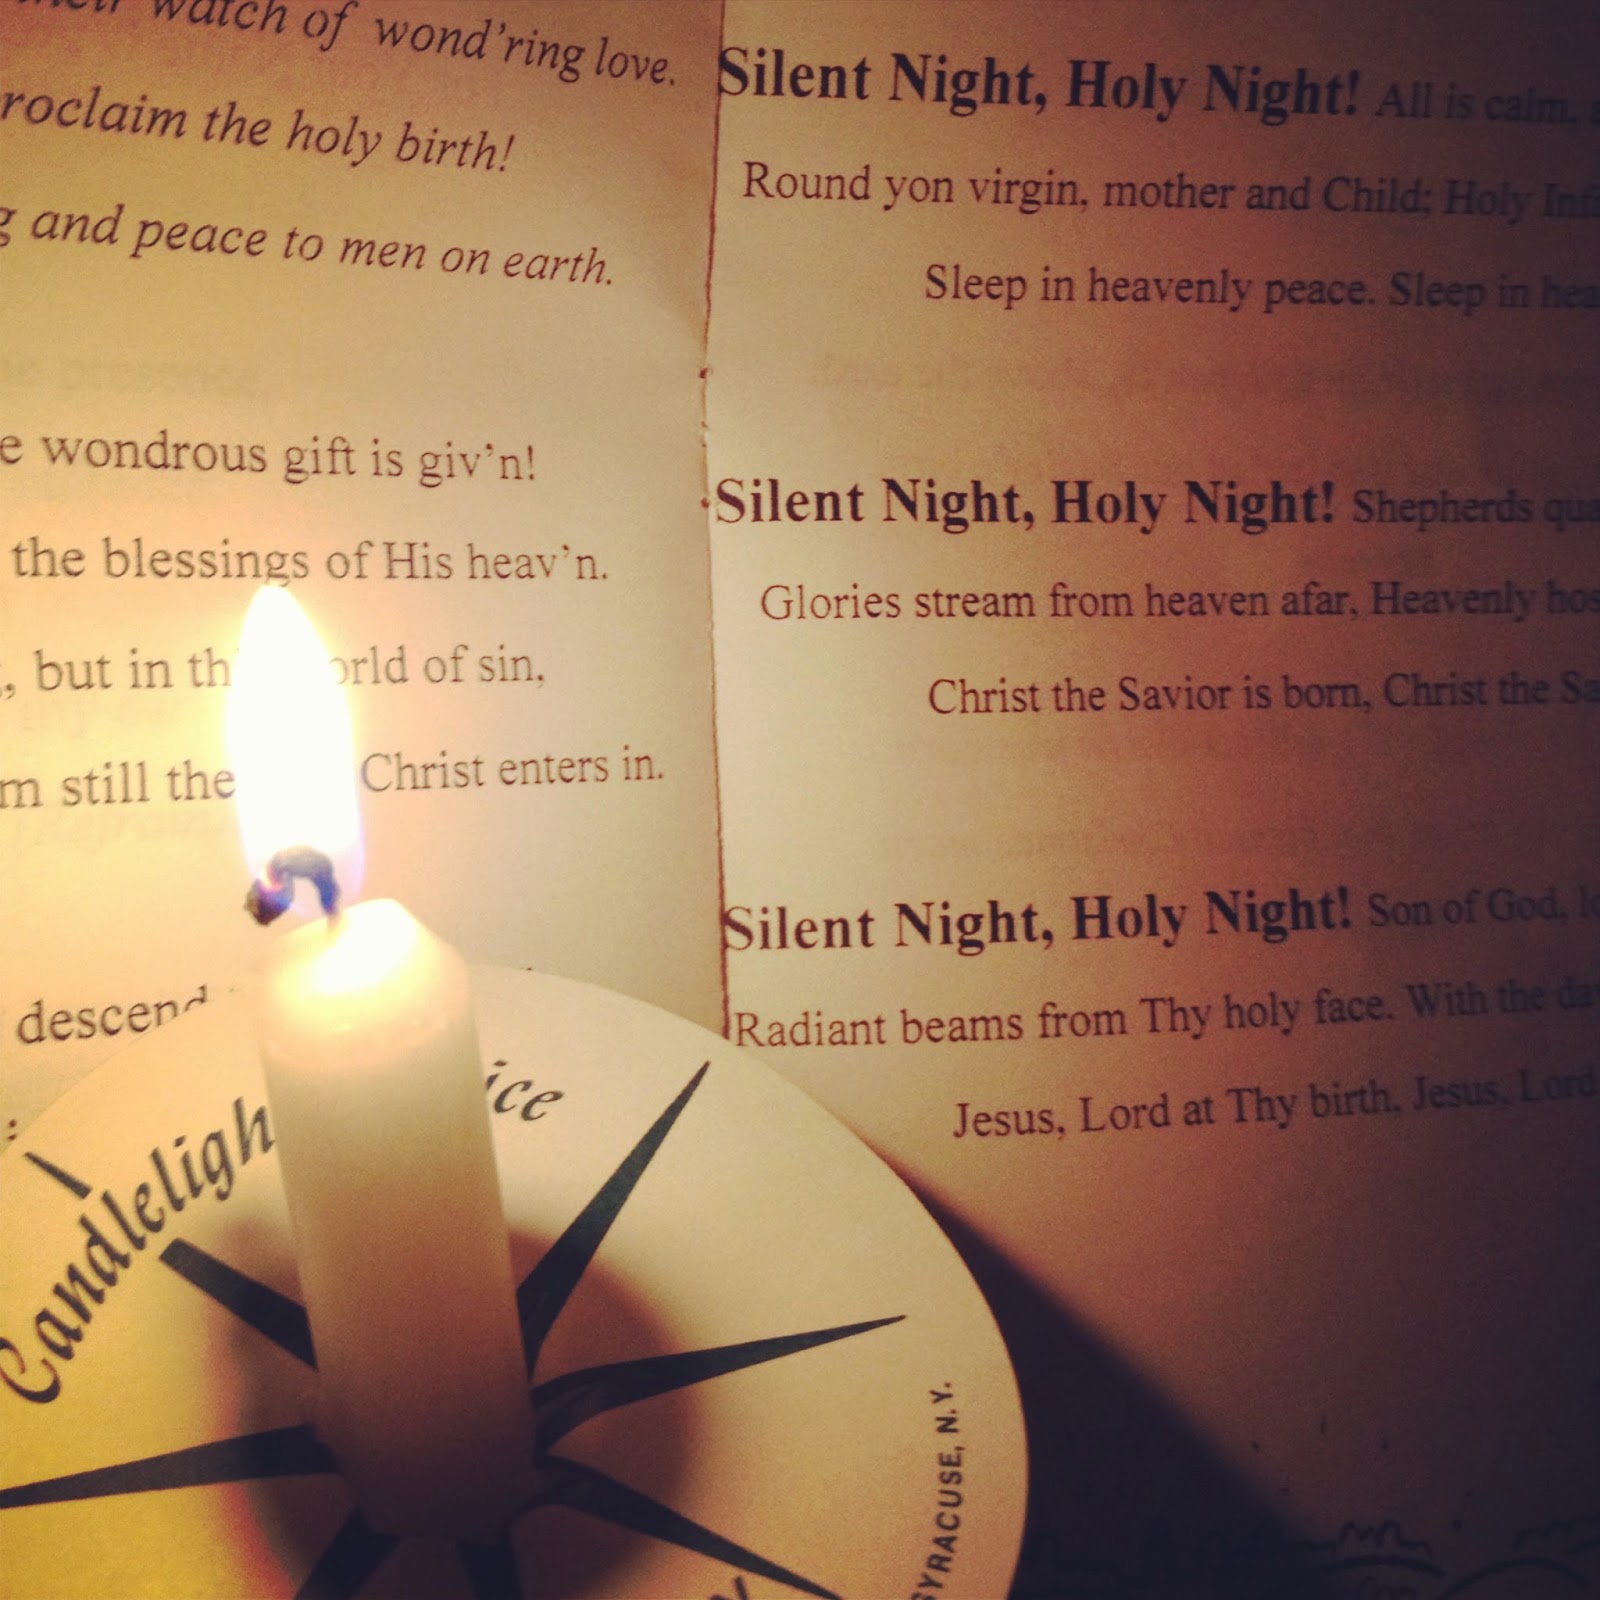 watch of wond'ring love.
roclaim the holy birth!
g and peace to men on earth.
e wondrous gift is giv'n!
the blessings of His heav'n.
, but in th orld of sin,
m still the Christ enters in.
descend
Silent Night, Holy Night! All is calm,
Round yon virgin, mother and Child; Holy Inf
Sleep in heavenly peace. Sleep in hea
Silent Night, Holy Night! Shepherds qua
Glories stream from heaven afar, Heavenly hos
Christ the Savior is born, Christ the Sa
Silent Night, Holy Night! Son of God, lo
Radiant beams from Thy holy face. With the da
Jesus, Lord at Thy birth, Jesus, Lord
Candleligh ice
SYRACUSE, N.Y.